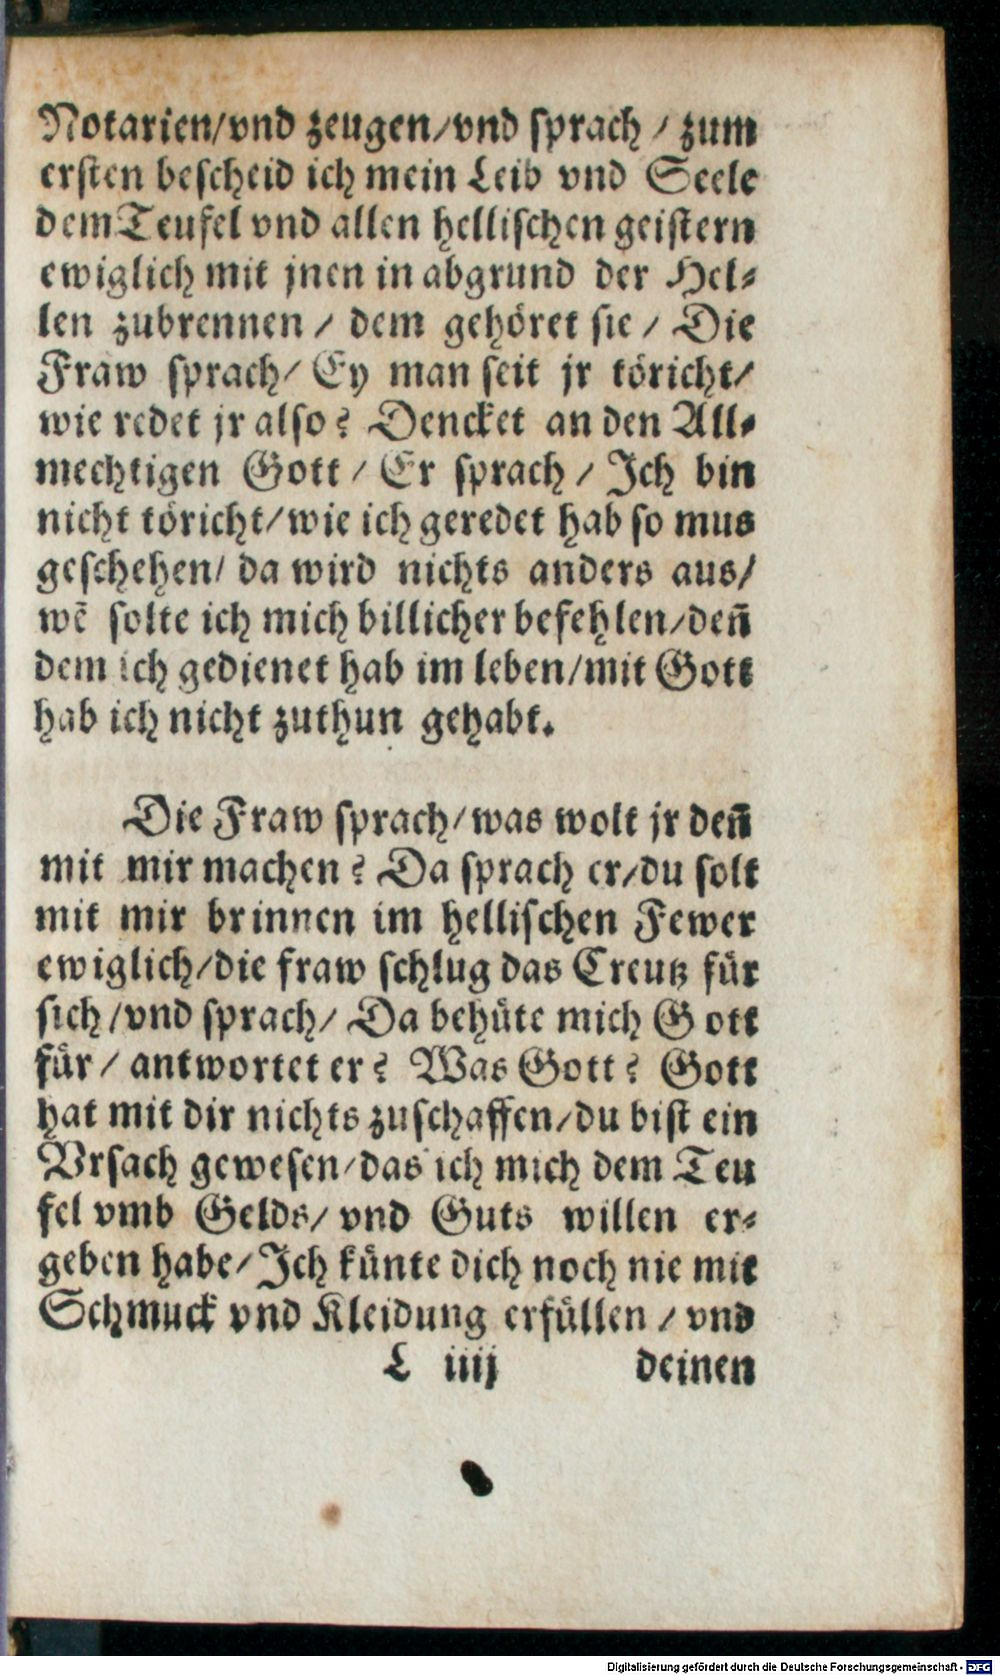 Notarien/vnd zeugen/vnd sprach / zum
ersten bescheid ich mein Leib vnd Seele
dem Teufel vnd allen hellischen geistern
ewiglich mit jnen in abgrund der Hel⸗
len zubrennen / dem gehöret sie / Die
Fraw sprach/ Ey man seit jr töricht/
wie redet jr also? Dencket an den All⸗
mechtigen Gott / Er sprach / Ich bin
nicht töricht/wie ich geredet hab so mus
geschehen/ da wird nichts anders aus/
wē solte ich mich billicher befehlen/den̄
dem ich gedienet hab im leben/mit Gott
hab ich nicht zuthun gehabt.
Die Fraw sprach/was wolt jr den̄
mit mir machen? Da sprach er/du solt
mit mir brinnen im hellischen Fewer
ewiglich/die fraw schlug das Creutz für
sich/vnd sprach/ Da behüte mich Gott
für/ antwortet er? Was Gott? Gott
hat mit dir nichts zuschaffen/du bist ein
Vrsach gewesen/das ich mich dem Teu
fel vmb Gelds/ vnd Guts willen er⸗
geben habe/Ich künte dich noch nie mit
Schmuck vnd Kleidung erfüllen / vnd
L iiij deinen
Digitalisierung gefördert durch die Deutsche Forschungsgemeinschaft - DFG